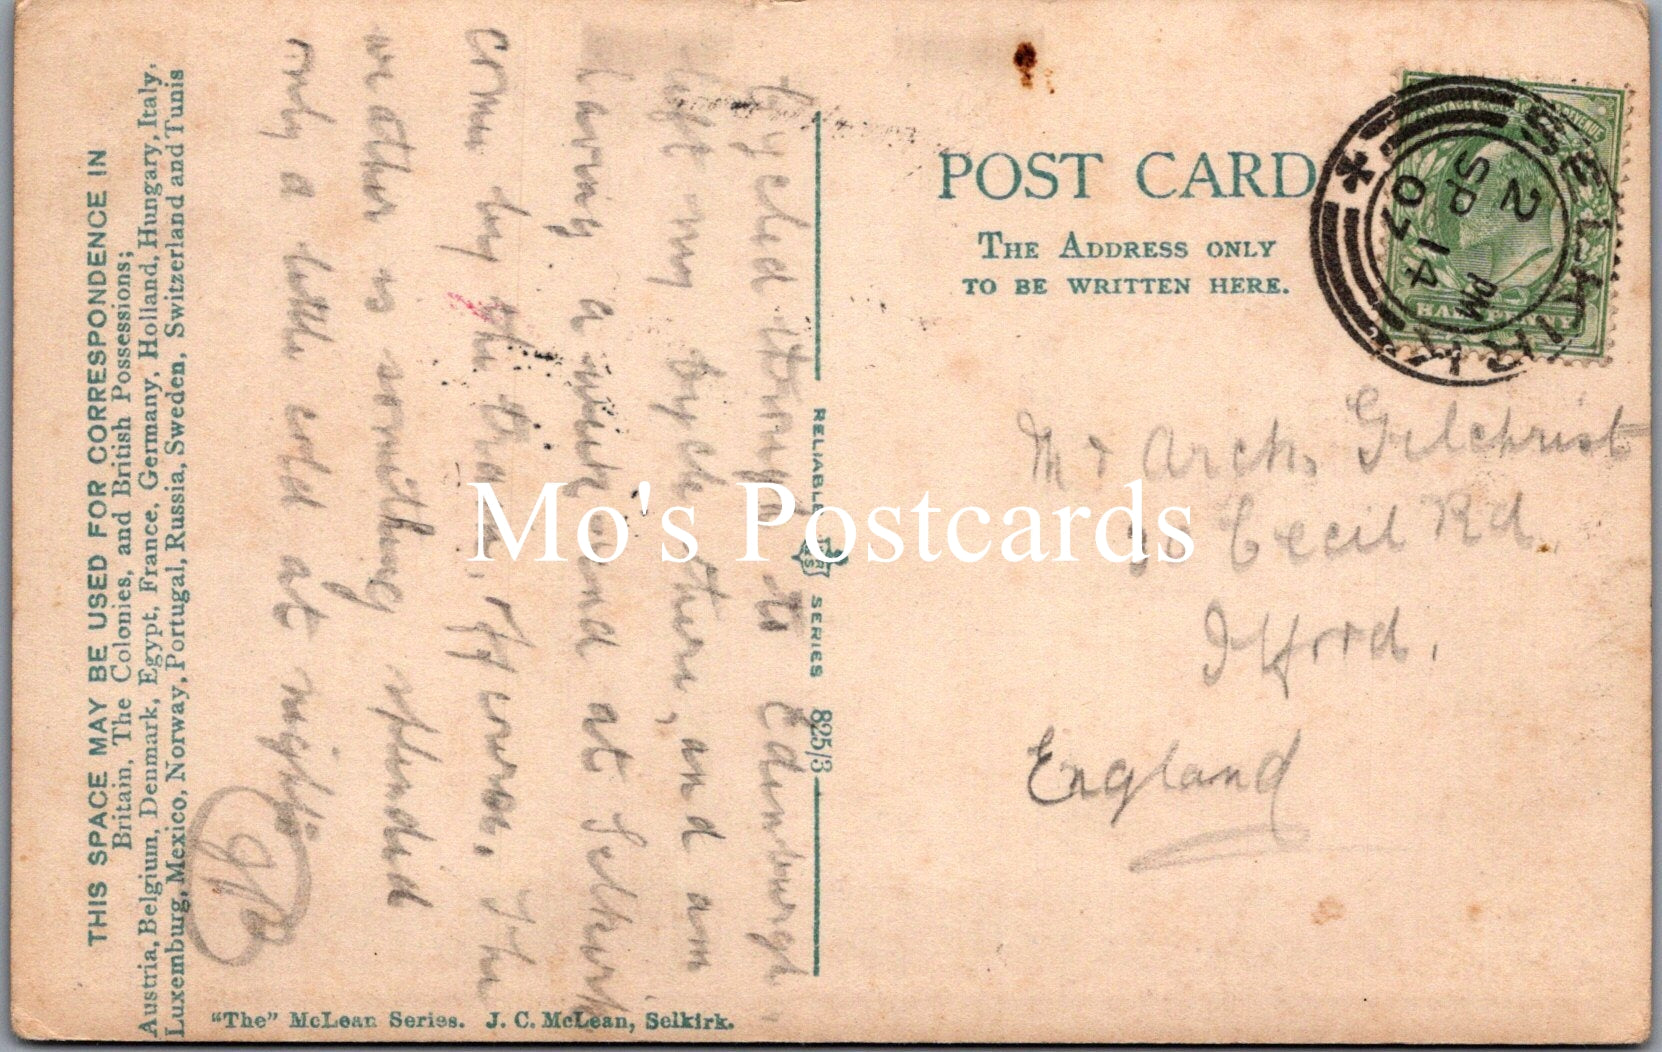 THIS SPACE MAY BE USED FOR CORRESPONDENCE IN
Britain, The Colonies, and British Possessions;
Austria, Belgium, Denmark, Egypt, France, Germany, Holland, Hungary, Italy,
Luxemburg, Mexico, Norway, Portugal, Russia, Sweden, Switzerland and Tunis
Cycled through to Edinburgh,
left my bycle there, and am
having a week end at Selkirk
comin by the train, of course. The
weather is something splendid
only a little cold at night
POST CARD
THE ADDRESS ONLY
TO BE WRITTEN HERE.
SELKIRK
2 PM
SP 14
07
HALFPENNY
Mr Arch. Gilchrist
Cecil Rd.
Ilford.
England
RELIABLE SERIES 825/3
"The" McLean Series. J. C. McLean, Selkirk.
Mo's Postcards